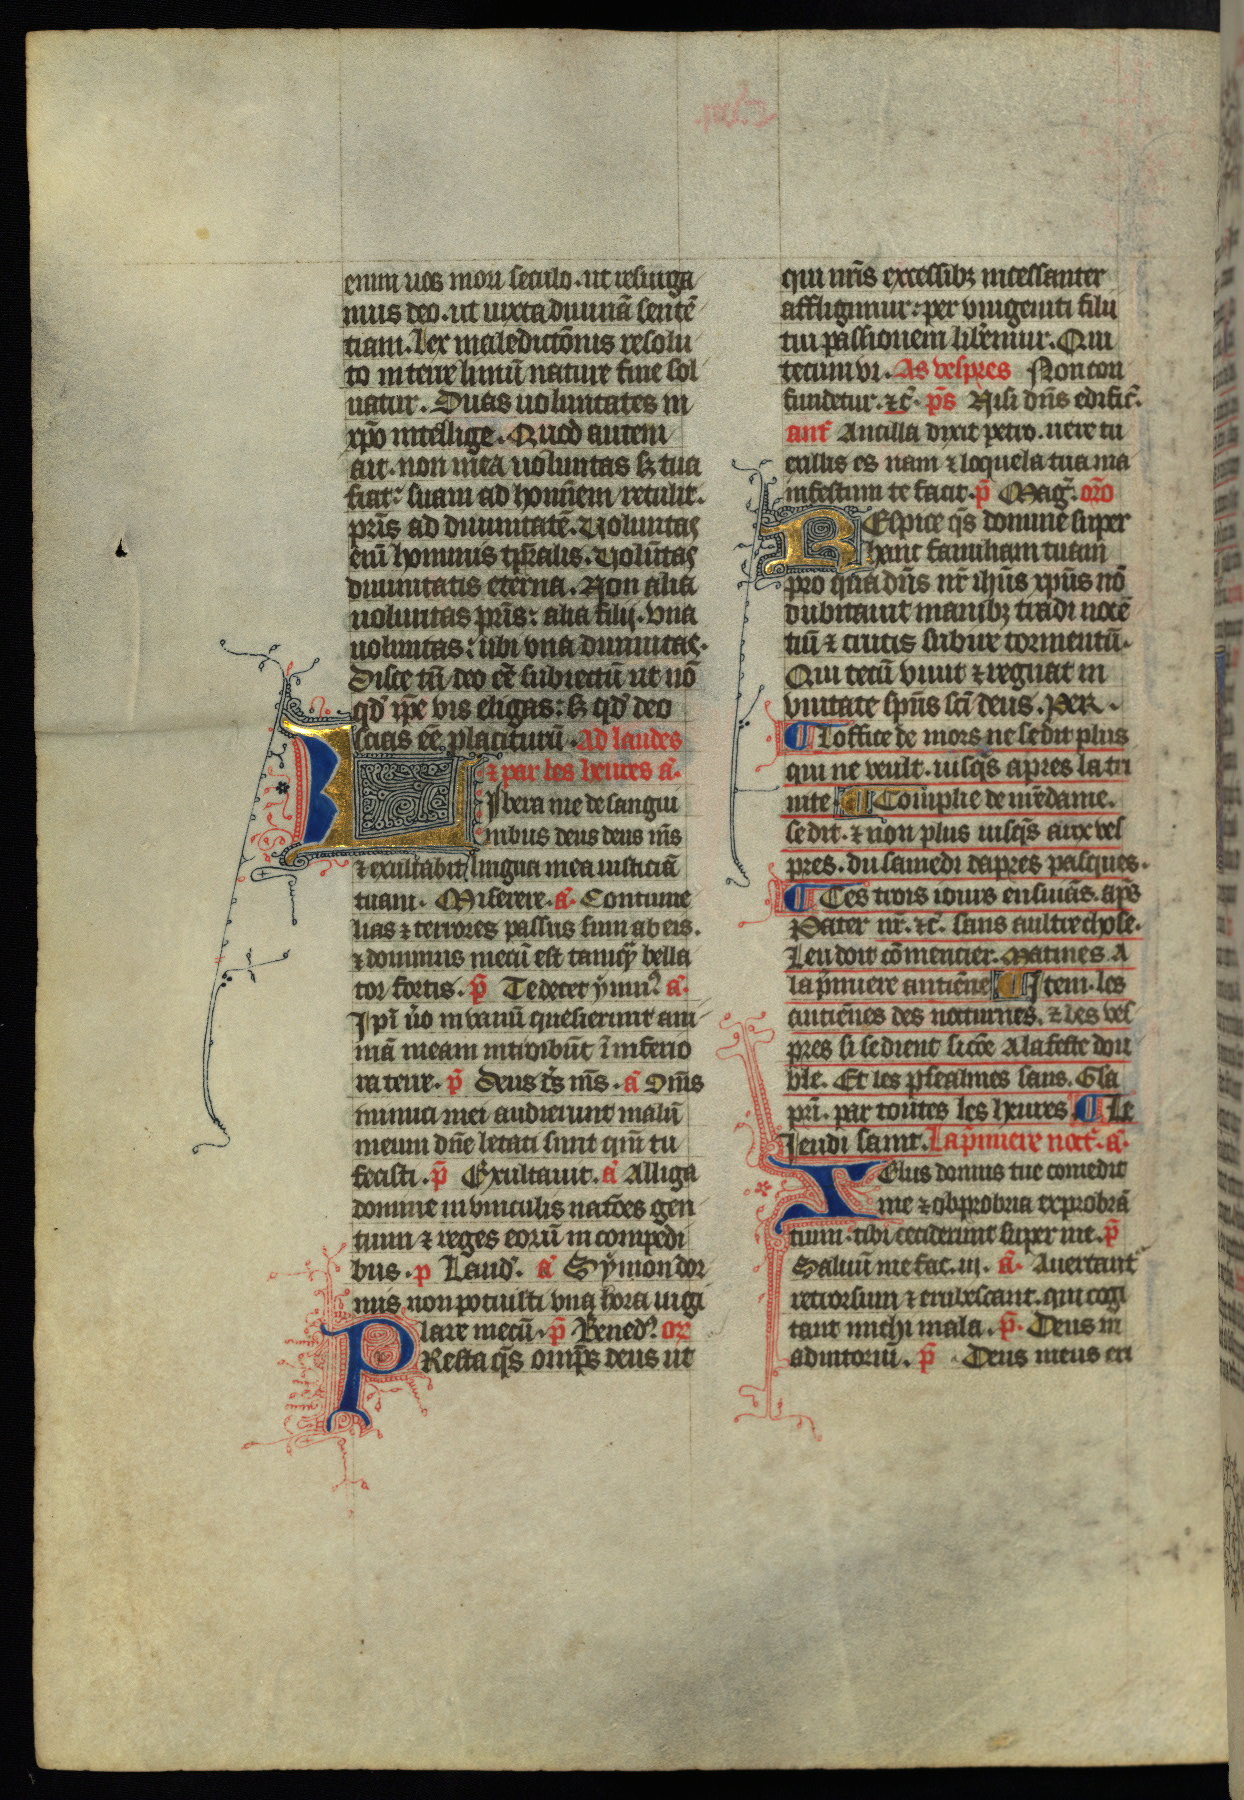 enim uos mori seculo. ut resurga
mus deo. ut iuxta diuinā sentē
tiam. lex maledictōnis resolu
to in terre limū nature fine sol
uatur. Duas uoluntates in
xp̄o intellige. Quod autem
ait. non mea uoluntas sꝫ tua
fiat: suam ad hominem retulit.
pr̄is ad diuinitatē. Voluntas
enī hominis tp̄ralis. Volūtas
diuinitatis eterna. Non alia
uoluntas pr̄is: alia filij. vna
uoluntas: ubi vna diuinitas.
Disce tn̄ deo eē subiectū ut nō
qd̄ ip̄e vis eligas: sꝫ qd̄ deo
scias eē placiturū. Ad laudes
⁊ par les heures a͂.
LIbera me de sangui
nibus deus deus m̄s
⁊ exultabit lingua mea iusticiā
tuam. Miserere. a͂. Contume
lias ⁊ terrores passus sum ab eis.
⁊ dominus mecū est tamqͣ bella
tor fortis. p̄ Te decet ymn᷒ a͂.
Ipī ūo in vanū quesierunt ani
mā meam introibūt ī inferio
ra terre. p̄ Deus d̄s m̄s. a͂ Om̄s
inimici mei audierunt malū
meum dn̄e letati sunt qm̄ tu
fecisti. p̄ Exultauit. a͂ Alliga
domine in vinculis natōes gen
tium ⁊ reges eorū in compedi
bus. p Laud᷒. a͂ Symon dor
mis non potuisti vna hora uigi
lare mecū. p̄ Bened᷒. or
PResta q̄s omp̄s deus ut
qui nr̄is excessibꝫ incessanter
affligimur: per vnigeniti filii
tui passionem liberemur. Qui
tecum vi. As vespres Non con
fundetur. ⁊c̄. p̄s Nisi dn̄s edific̄.
ant̄ Ancilla dixit petro. uere tu
ex illis es nam ⁊ loquela tua ma
nifestum te facit. p̄ Maḡ. orō
REspice q̄s domine super
hanc familiam tuam
pro qua dn̄s nr̄ ihūs xpūs nō
dubitauit manibꝫ tradi nocē
tiū ⁊ crucis subire tormentū.
Qui tecū viuit ⁊ regnat in
vnitate spūs sc̄i deus. PER.
¶ Loffice de mors ne se dit plus
qui ne veult. iusq̄s apres la tri
nite. ¶ Complie de nr̄e dame.
se dit. ⁊ non plus iusq̄s aux ves
pres. du samedi dapres pasques.
¶ Ces trois iours ensuiuās. ap̄s
Pater nr̄. ⁊c̄. sans aultre chose.
Leu doit cōmencier. Matines A
la p̄miere antienne ¶ Item. les
antiēnes des nocturnes. ⁊ des ves
pres si se dient sicōe A la feste dou
ble. Et les psealmes sans. Glā
pr̄i. par toutes les heures ¶ Le
Jeudi saint. La p̄miere noct̄. a͂.
ZElus domus tue comedit
me ⁊ obprobria exprobrā
tium. tibi ceciderunt super me. p̄
Saluū me fac. iij. a͂. Auertant
retrorsum ⁊ erubescant. qui cogi
tant michi mala. p̄. Deus in
adiutoriū. p̄. Deus meus eri